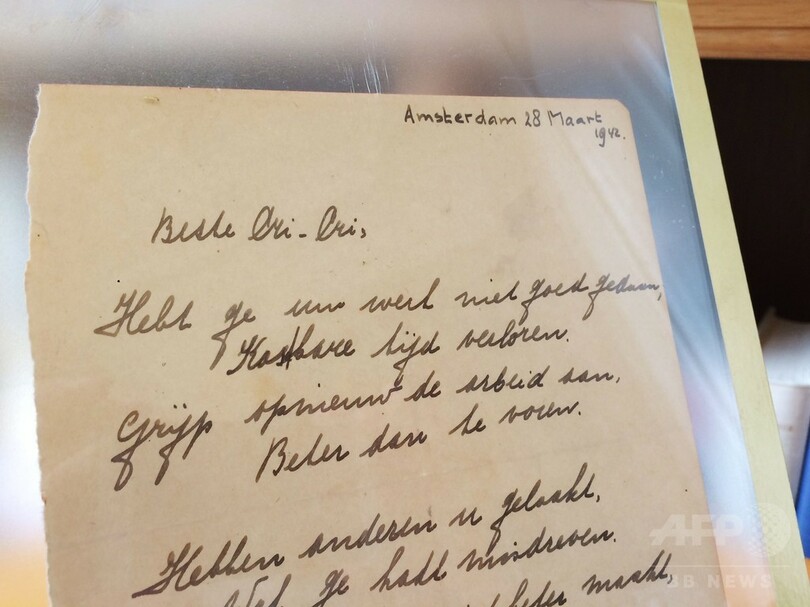 Amsterdam 28 Maart
1942.
Beste Cri-Cri,
Hebt ge uw werk niet goed gedaan,
Kostbare tijd verloren.
Grijp opnieuw de arbeid aan,
Beter dan te voren.
Hebben anderen u gelaakt,
ge hadt misdreven.
beter maakt,
AFP
BB NEWS